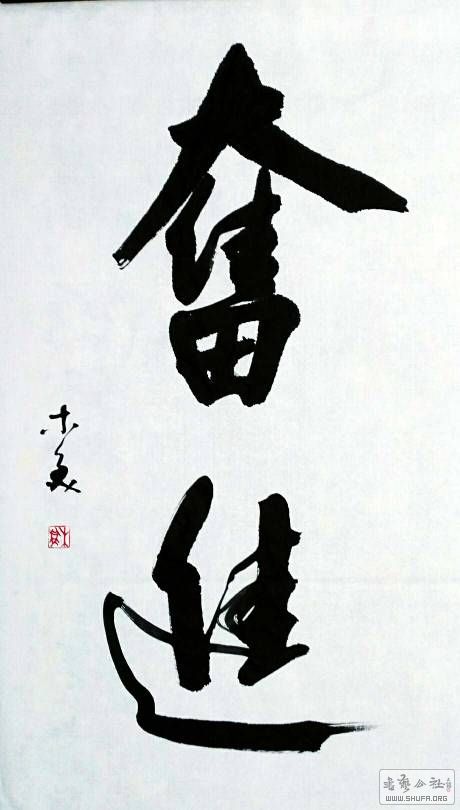 奮進
书艺公社
WWW.SHUFA.ORG